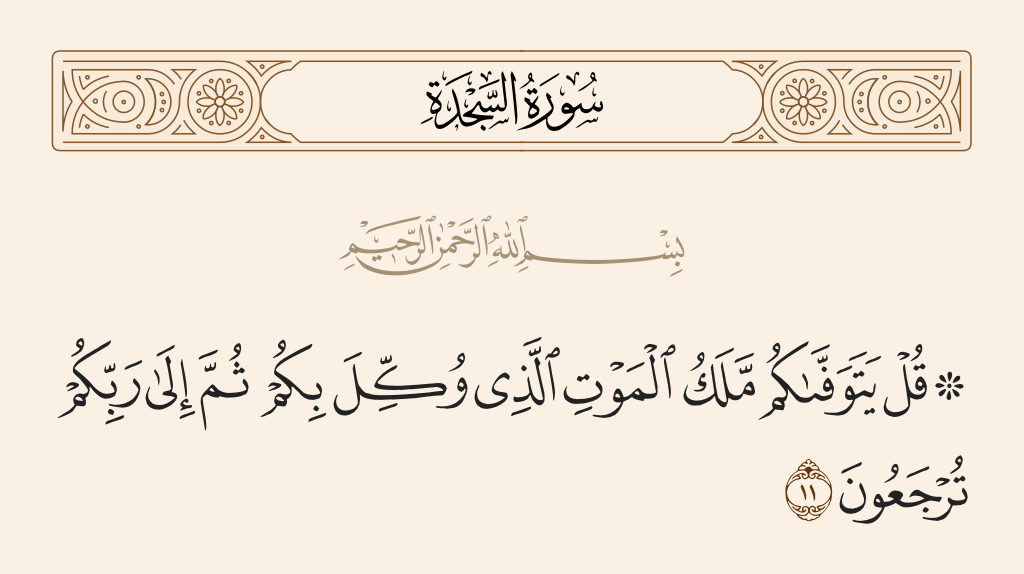 سُورَةُ السَّجْدَةِ
بِسْمِ ٱللَّهِ ٱلرَّحْمَٰنِ ٱلرَّحِيمِ
۞ قُلْ يَتَوَفَّىٰكُم مَّلَكُ ٱلْمَوْتِ ٱلَّذِى وُكِّلَ بِكُمْ ثُمَّ إِلَىٰ رَبِّكُمْ
تُرْجَعُونَ ١١